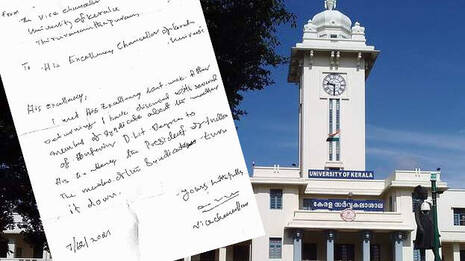 From
The Vice Chancellor
University of Kerala
Thiruvananthapuram
To His Excellency Chancellor of Kerala
His Excellency,
I met His Excellency last week. After
returning I have discussed with several
member of Syndicate about the matter
of Conferring D Lit Degree to
His Excellency the President of India
The members of the Syndicate turn
it down.
Yours faithfully
Vice chancellor
7/12/2021
UNIVERSITY OF KERALA
കേരള സർവ്വകലാശാല